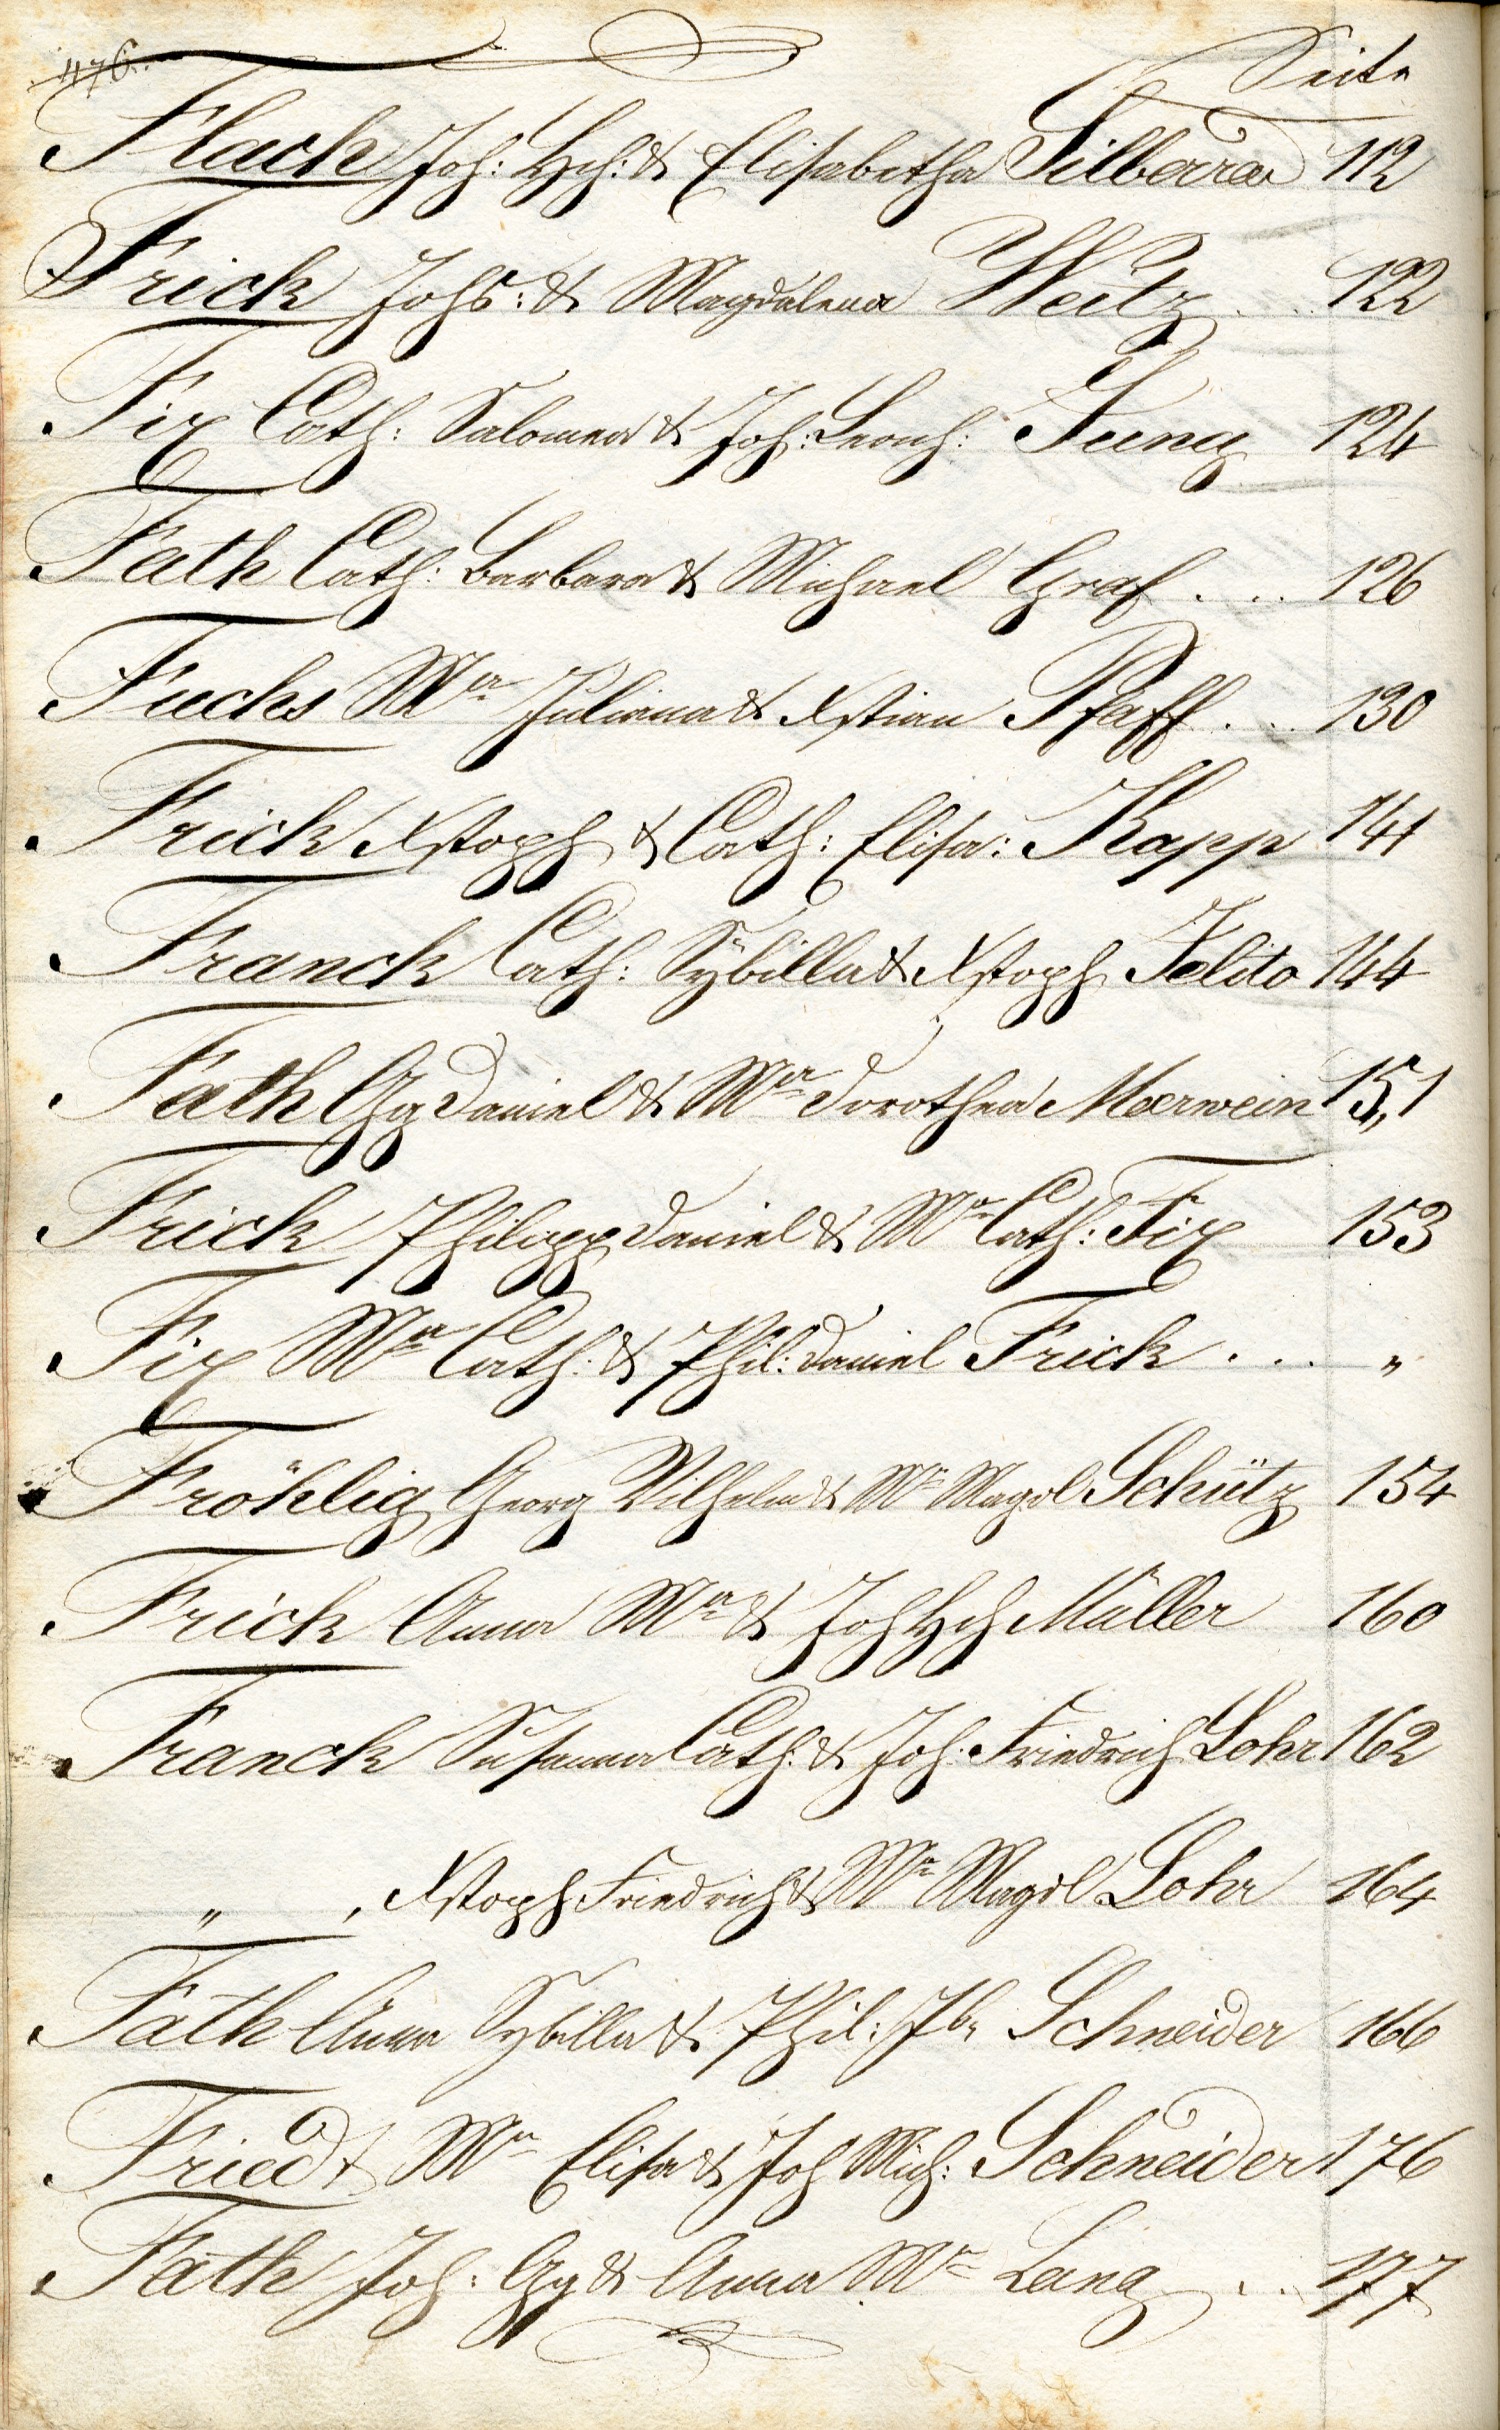 476.
Seite
Flach Joh: Hch: & Elisabetha Silberra 112
Frick Johs: & Magdalena Weitz . . . 122
Fix Cath: Salomea & Joh: Leonh: Jung 124
Fath Cath: Barbara & Michael Graf . . . 126
Fuchs Mra Juliana & Xstian Pfaff . . . 130
Frick Xstoph & Cath: Elisa: Kapp 141
Franck Cath: Sÿbilla & Xstoph Felito 144
Fath Gg Daniel & Mra Dorothea Moerwein 151
Frick Philipp Daniel & Mra Cath: Fix 153
Fix Mra Cath: & Phil: Daniel Frick . . . "
Fröhlig Georg Wilhelm & Mra Magdl Schütz 154
Frick Anna Mra & Joh Hch Müller 160
Franck Susanna Cath: & Joh: Friedrich Lohr 162
" , Xstoph Friedrich & Mra Magdl Lohr 164
Fath Anna Sybilla & Phil: Jb. Schneider 166
Friedt Mra Elisa & Joh Mich: Schneider 176
Fath Joh: Gg & Anna Mra Lang . . . 177